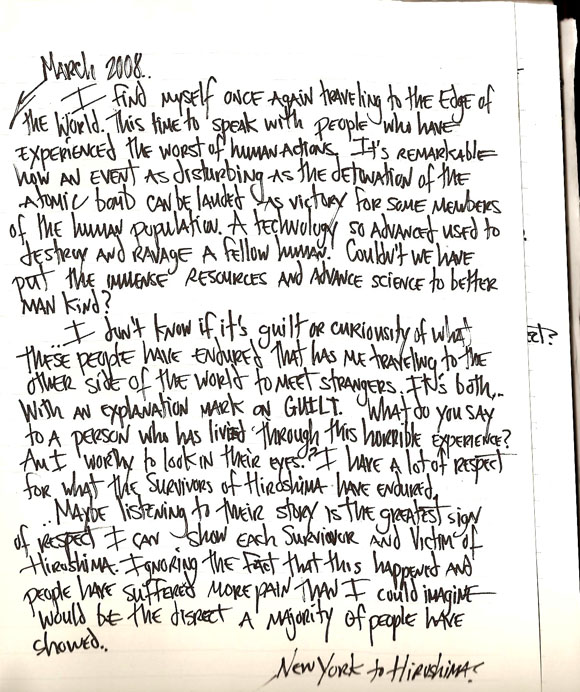 March 2008..
I find myself once again traveling to the Edge of
the World. This time to speak with people who have
experienced the worst of human actions. It's remarkable
how an event as disturbing as the detonation of the
Atomic bomb can be lauded as victory for some members
of the human population. A technology so advanced used to
destroy and ravage a fellow human. Couldn't we have
put the immense resources and advance science to better
man kind?
...I don't know if it's guilt or curiousity of what
these people have endured that has me traveling to the
other side of the world to meet strangers. It's both,..
With an explanation mark on GUILT. What do you say
to a person who has lived through this horrible experience?
Am I worthy to look in their eyes? I have a lot of respect
for what the survivors of Hiroshima have endured.
...Maybe listening to their story is the greatest sign
of respect I can show each Survivor and Victim of
Hiroshima. Ignoring the fact that this happened and
people have suffered more pain than I could imagine
would be the disrect a majority of people have
showed..
New York to Hiroshima